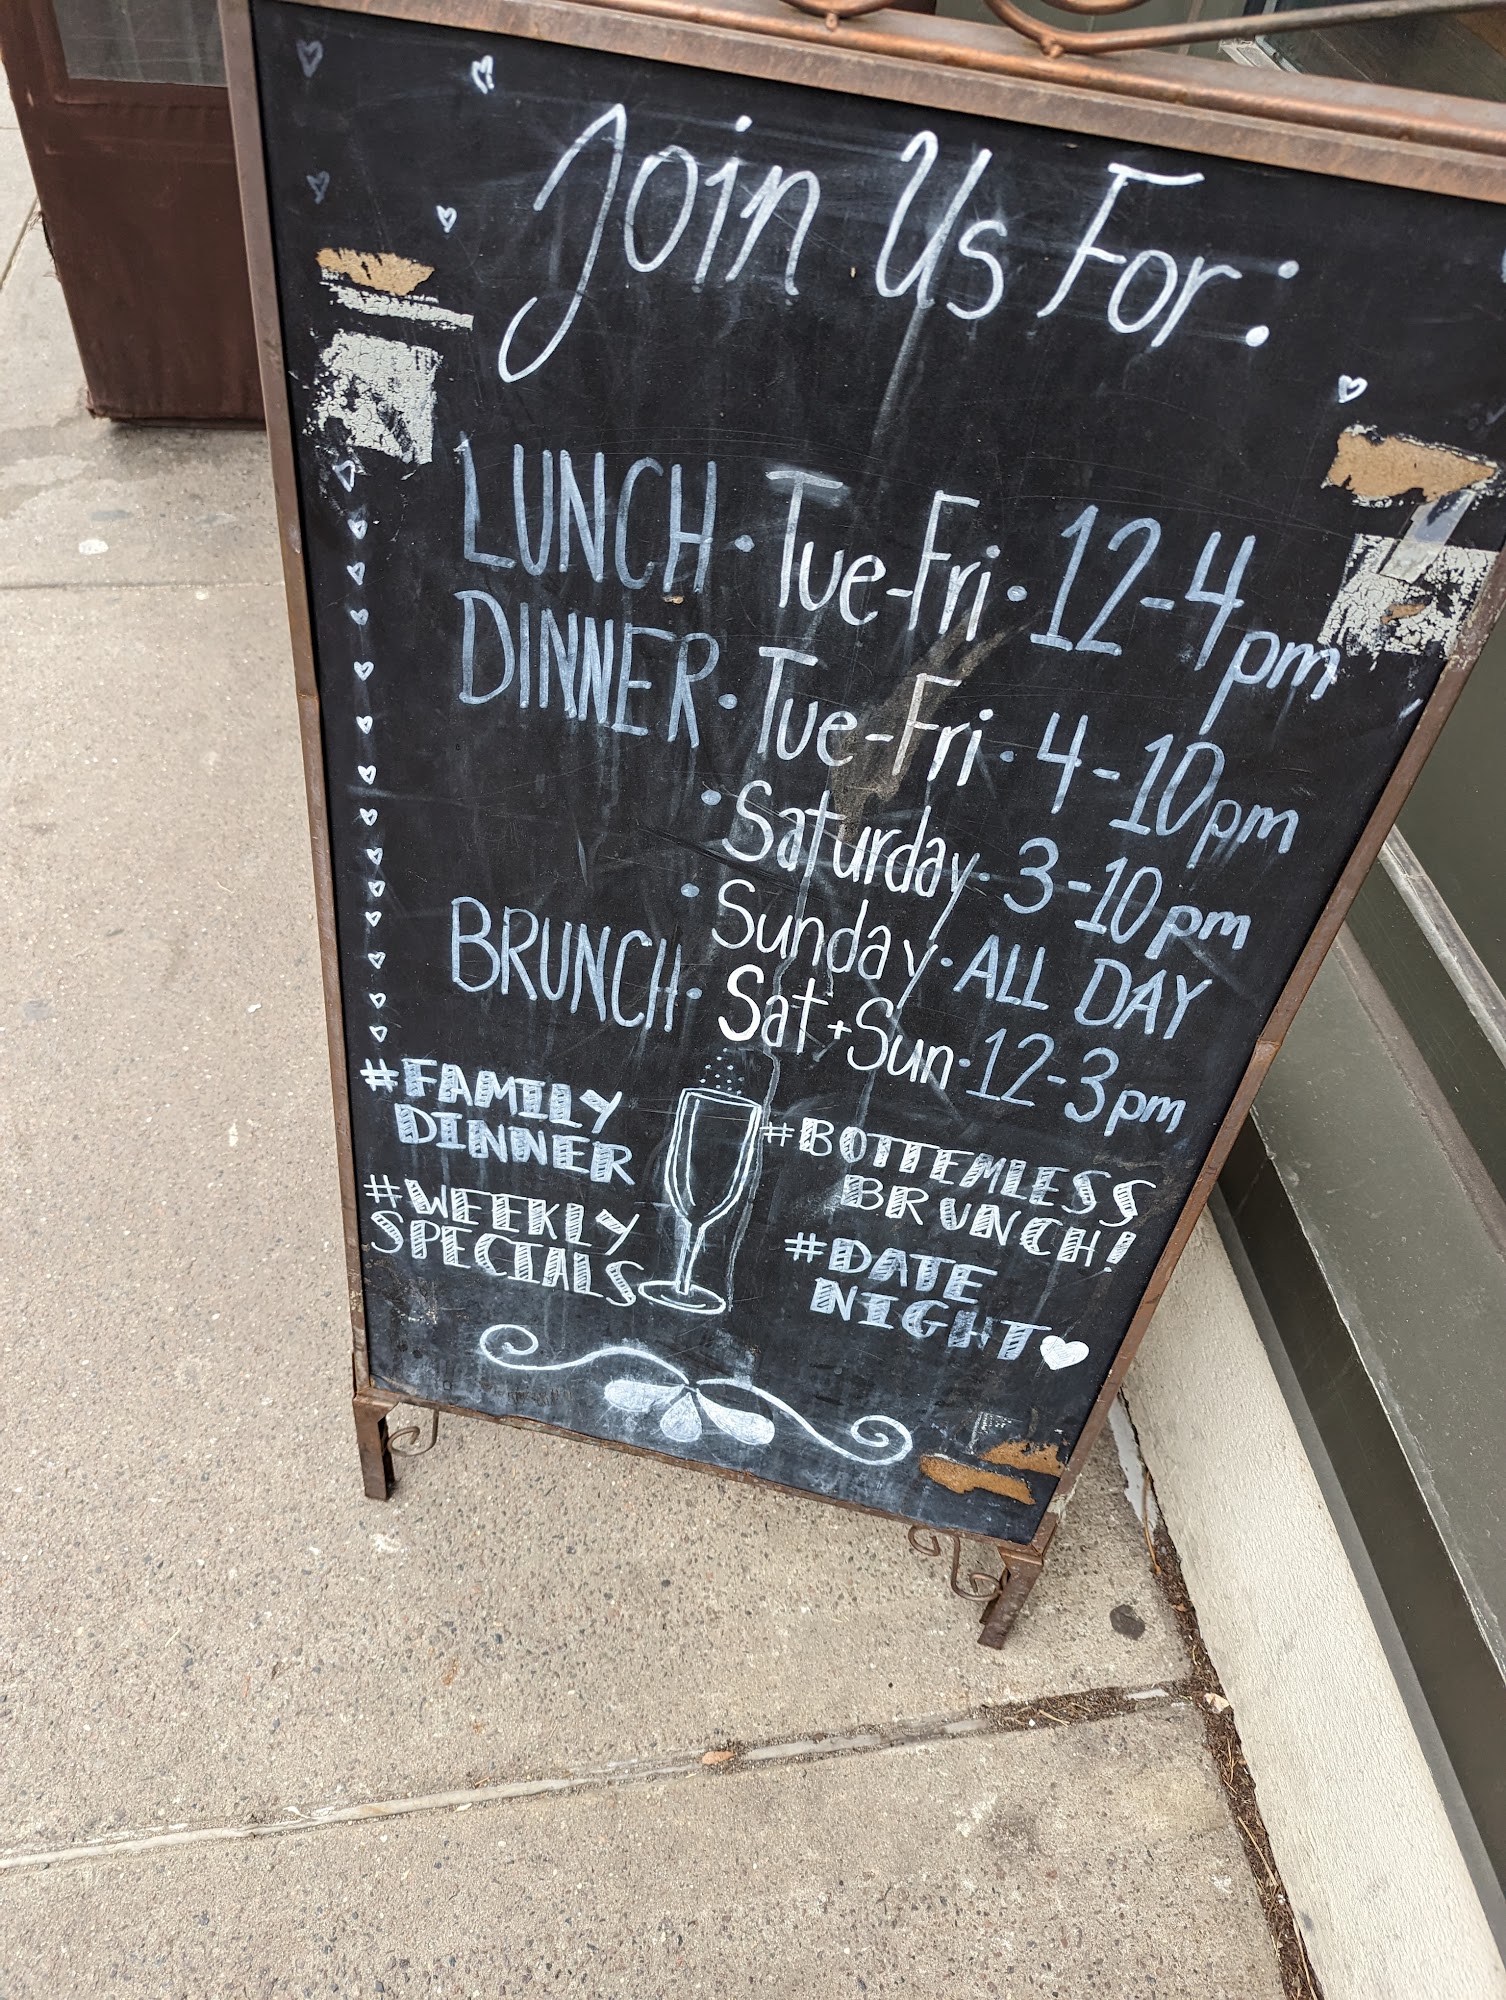 Join Us For:
LUNCH · Tue-Fri · 12-4pm
DINNER · Tue-Fri · 4-10pm
· Saturday · 3-10pm
· Sunday · ALL DAY
BRUNCH · Sat + Sun · 12-3pm
#FAMILY
DINNER
#WEEKLY
SPECIALS
#BOTTEMLESS
BRUNCH!
#DATE
NIGHT